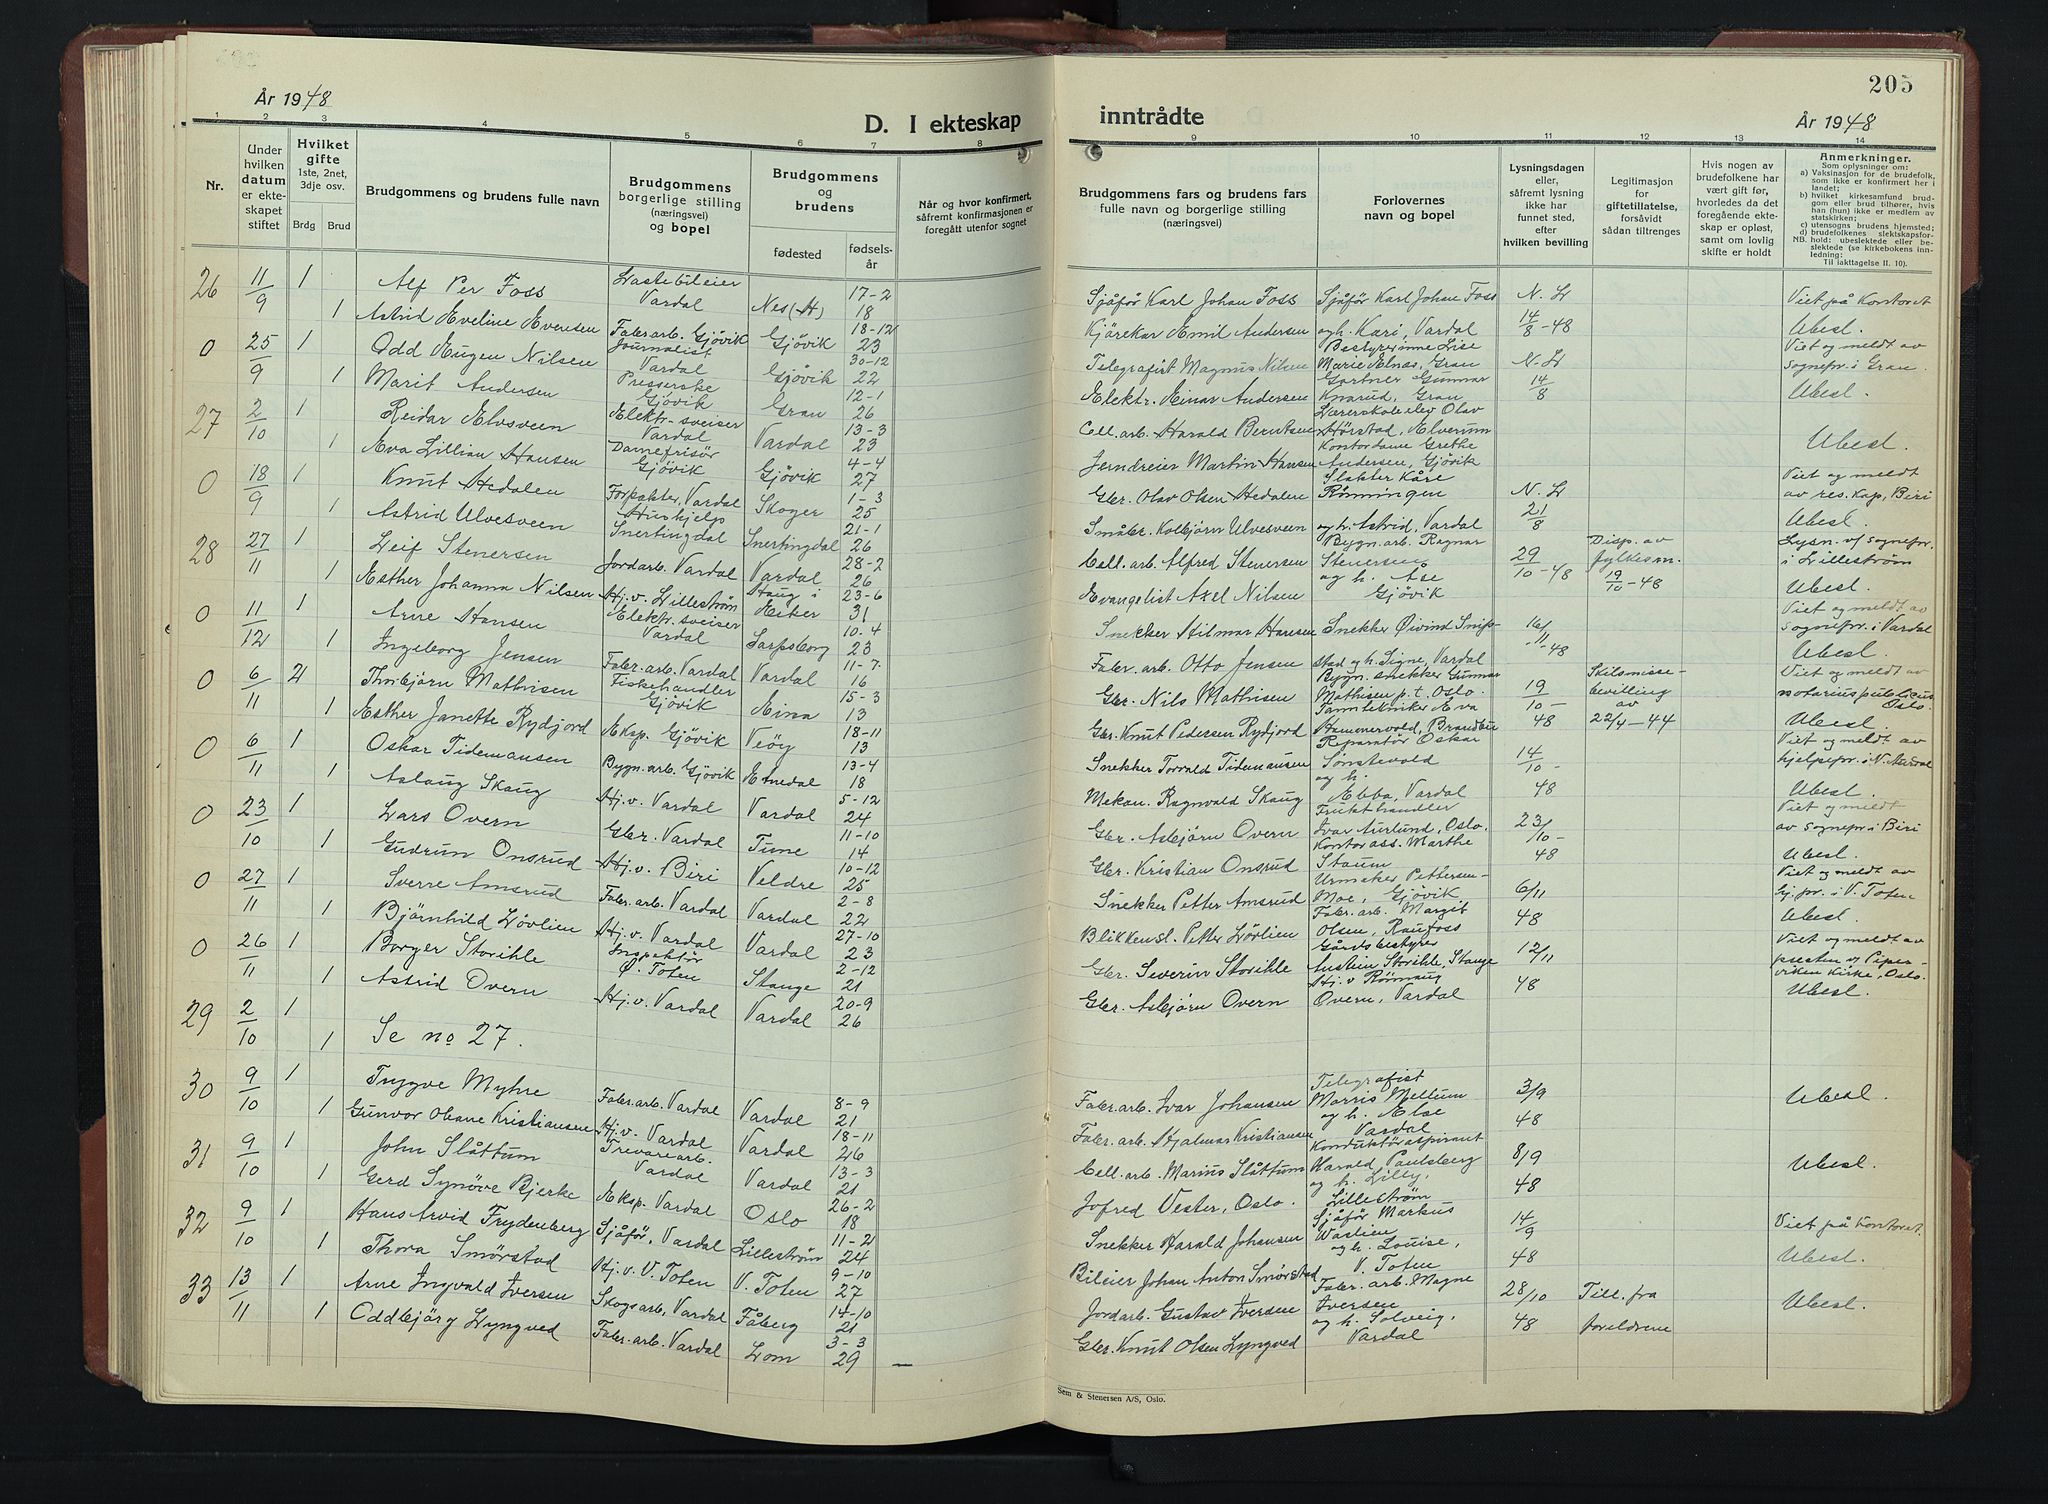 År 1948
D. I ekteskap
1 2 3 4 5 6 7 8
Nr.
Under hvilken datum er ekteskapet stiftet
Hvilket gifte 1ste, 2net, 3dje osv.
Brdg Brud
Brudgommens og brudens fulle navn
Brudgommens borgerlige stilling (næringsvei) og bopel
Brudgommens og brudens
fødested
fødselsår
Når og hvor konfirmert, såfremt konfirmasjonen er foregått utenfor sognet
26 11/9 1 Alf Per Foss Lastebileier Vardal Nes (H) 17-2 18
1 Astrid Eveline Evensen Faler.arb. Gjøvik Gjøvik 18-12 23
0 25/9 1 Odd Eugen Nilsen Journalist Vardal Gjøvik 30-12 22
1 Marit Andersen Presserske Gjøvik Gran 12-1 26
27 2/10 1 Reidar Elvsveen Elektr.sveiser Vardal Vardal 13-3 23
1 Eva Lillian Hansen Damefrisør Gjøvik Gjøvik 4-4 27
0 18/9 1 Knut Hedalen Forpakter, Vardal Skoger 1-3 25
1 Astrid Ulvesveen Hushjelp Snertingdal Snertingdal 21-1 26
28 27/11 1 Leif Stenersen Jordarb. Vardal Vardal 28-2 26
1 Esther Johanna Nilsen Hj.v. Lillestrøm Haug i Eiker 23-6 31
0 11/12 1 Arne Hansen Elektr. sveiser Vardal Sarpsborg 10-4 23
1 Ingeborg Jensen Faler.arb. Vardal Vardal 11-7 16
0 6/11 2 Thorbjørn Mathisen Fiskehandler Gjøvik Eina 15-3 13
1 Esther Janette Rydjord Eksp. Gjøvik Veøy 18-11 13
0 6/11 1 Oskar Tidemansen Bygn.arb. Gjøvik Etnedal 13-4 18
1 Aslaug Skaug Hj.v. Vardal Vardal 5-12 24
0 23/10 1 Lars Overn Gbr. Vardal Tune 11-10 14
1 Gudrun Onsrud Hj.v. Biri Veldre 10-12 25
0 27/11 1 Sverre Amsrud Faler.arb. Vardal Vardal 2-8 22
1 Bjørnhild Løvlien Hj.v. Vardal Vardal 27-10 23
0 26/11 1 Borger Storihle Inspektør Ø. Toten Stange 2-12 21
1 Astrid Overn Hj.v. Vardal Vardal 20-9 26
29 2/10 1 1 Se no 27.
30 9/10 1 Trygve Myhre Faler.arb. Vardal Vardal 8-9 21
1 Gunvor Oliane Kristiansen Hj.v. Vardal Vardal 18-11 26
31 9/10 1 John Slåttum Trevarearb. Vardal Vardal 13-3 21
1 Gerd Synøve Bjerke Eksp. Vardal Oslo 26-2 18
32 9/10 1 Hans Arvid Frydenberg Sjåfør, Vardal Lillestrøm 11-2 24
1 Thora Smørstad Hj.v. V. Toten V. Toten 9-10 27
33 13/11 1 Arne Ingvald Iversen Skogsarb. Vardal Fåberg 14-10 21
1 Oddbjørg Lyngved Faler.arb. Vardal Lom 3-3 29 —
205
inntrådte
År 1948
9 10 11 12 13 14
Brudgommens fars og brudens fars fulle navn og borgerlige stilling (næringsvei)
Forlovernes navn og bopel
Lysningsdagen eller, såfremt lysning ikke har funnet sted, efter hvilken bevilling
Legitimasjon for giftetillatelse, forsåvidt sådan tiltrenges
Hvis nogen av brudefolkene har vært gift før, hvorledes da det foregående ekteskap er opløst, samt om lovlig skifte er holdt
Anmerkninger.
Som oplysninger om:
a) Vaksinasjon for de brudefolk, som ikke er konfirmert her i landet;
b) hvilket kirkesamfund brudgom eller brud tilhører, hvis han (hun) ikke er medlem av statskirken;
c) utensogns brudens hjemsted;
d) brudefolkenes slektskapsforhold: ubeslektede eller beslektede (se kirkebokens innledning:
NB. Til iakttagelse II. 10).
Sjåfør Karl Johan Foss Sjåfør Karl Johan Foss N. L Viet på Kontoret
Kjørekar Emil Andersen og h. Kari, Vardal 14/8-48 Ubesl.
Telegrafist Magnus Nilsen Bestyrerinne Lise Marie Elnas, Gran N. L Viet og meldt av sognepr. i Gran.
Elektr. Einar Andersen Gartner Gunnar Knarud, Gran 14/8 Ubesl.
Cell. arb. Harald Berntsen Lærerskoleelev Olav Hørstad, Elverum
Jerndreier Martin Hansen Kontordame Grethe Andersen, Gjøvik Ubesl.
Gbr. Olav Olsen Hedalen Slakter Kåre Rønningen N. L Viet og meldt av res. kap., Biri
Småbr. Kolbjørn Ulvesveen og h. Astrid, Vardal 21/8 Ubesl.
Cell. arb. Alfred Stenersen Bygn. arb. Ragnar Stenersen 29/10-48 Disp. av fylkesm. 19/10-48 Lysn. v/ sognepr. i Lillestrøm
Evangelist Axel Nilsen og h. Åse Gjøvik Ubesl.
Snekker Hilmar Hansen Snekker Øivind Snipstad og h. Signe, Vardal 16/11-48 Viet og meldt av sognepr. i Vardal
Faler. arb. Otto Jensen Ubesl.
Gbr. Nils Mathisen Bygn. snekker Gunnar Mathisen p.t. Oslo. 19/10-48 Skilsmissebevilling av 22/4-44 Viet og meldt av notarius publicus Oslo.
Gbr. Knut Pedersen Rydjord Tanntekniker Eva Hammervold, Brandbu Ubesl.
Snekker Torvald Tidemansen Reparatør Oskar Sønstevold 14/10-48 Viet og meldt av hjelpepr. i N. Aurdal
Mekan. Ragnvald Skaug og h. Ebba, Vardal Ubesl.
Gbr. Asbjørn Overn Frukthandler Ivar Aurlund, Oslo. 23/10-48 Viet og meldt av sognepr. i Biri
Gbr. Kristian Onsrud Kontorass. Marthe Staum Ubesl.
Snekker Petter Amsrud Urmaker Pettersen-Moe, Gjøvik 6/11 48 Viet og meldt av hj.pr. i V. Toten
Blikkensl. Petter Løvlien Faler. arb. Margit Olsen, Raufoss Ubesl.
Gbr. Severin Storihle Gårdsbestyrer Austein Storihle, Stange 12/11 48 Viet og meldt av presten v/ Piperviken Kirke, Oslo.
Gbr. Asbjørn Overn Hj.v. Rønnaug Overn, Vardal Ubesl.
Faler. arb. Ivar Johansen Telegrafist Morris Mellum og h. Else Vardal 3/9 48 Ubesl.
Faler. arb. Hjalmar Kristiansen
Cell. arb. Marius Slåttum Konduktøraspirant Harald Paulsberg og h. Lilly, Lillestrøm 8/9 48 Ubesl.
Jofred Vester, Oslo.
Snekker Harald Johansen Sjåfør Markus Wåslien og h. Louise, V. Toten 14/9 48 Viet på Kontoret.
Bileier Johan Anton Smørstad Ubesl.
Jordarb. Gustav Iversen Faler. arb. Magne Iversen og h. Solveig, Vardal 28/10 48 Till. fra foreldrene Ubesl.
Gbr. Knut Olsen Lyngved
Sem & Stenersen A/S, Oslo.